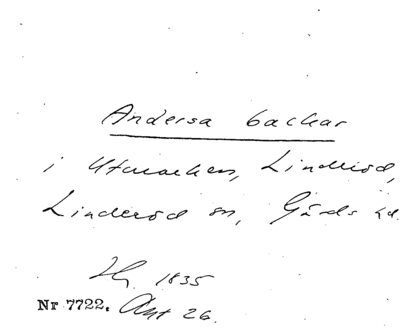 Andersa backar
i Utmarken, Linderöd,
Linderöd sn, Gärds hd.
1835
Nr 7722. Akt 26.